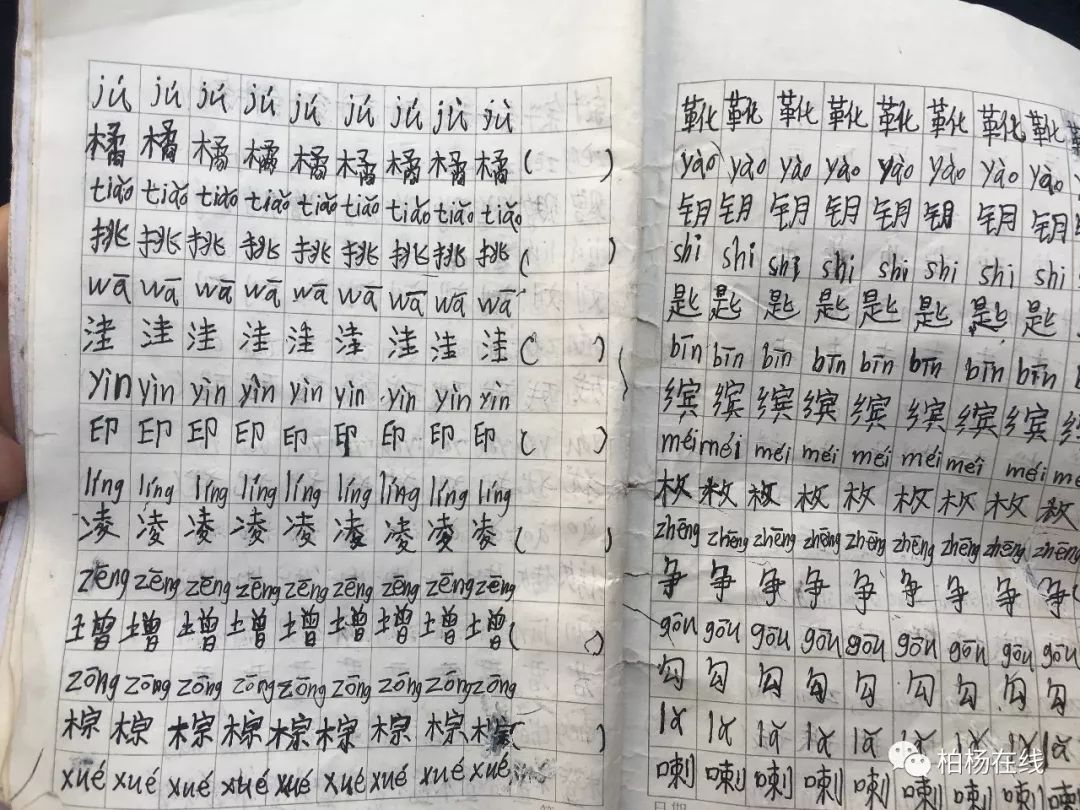 jú jú jú jú jú jú jú jù jù
橘 橘 橘 橘 橘 橘 橘 橘 橘 ( )
tiǎo tiǎo tiǎo tiǎo tiǎo tiǎo tiǎo tiǎo tiǎo
挑 挑 挑 挑 挑 挑 挑 挑 挑 ( )
wā wā wā wā wā wā wā wā wā
洼 洼 洼 洼 洼 洼 洼 洼 洼 ( )
yìn yìn yìn yìn yìn yìn yìn yìn yìn
印 印 印 印 印 印 印 印 印 ( )
líng líng líng líng líng líng líng líng líng
凌 凌 凌 凌 凌 凌 凌 凌 凌 ( )
zēng zēng zēng zēng zēng zēng zēng zēng zēng
增 增 增 增 增 增 增 增 增 ( )
zōng zōng zōng zōng zōng zōng zōng zōng zōng
棕 棕 棕 棕 棕 棕 棕 棕 棕 ( )
xué xué xué xué xué xué xué xué xué
靴 靴 靴 靴 靴 靴 靴 靴
yào yào yào yào yào yào yào yào
钥 钥 钥 钥 钥 钥 钥 钥
shi shi shi shi shi shi shi shi
匙 匙 匙 匙 匙 匙 匙 匙
bīn bīn bīn bīn bīn bīn bīn bīn
缤 缤 缤 缤 缤 缤 缤 缤
méi méi méi méi méi méi méi méi me
枚 枚 枚 枚 枚 枚 枚 枚 枚
zhēng zhēng zhēng zhēng zhēng zhēng zhēng zhēng zhēng
争 争 争 争 争 争 争 争 争 (
gōu gōu gōu gōu gōu gōu gōu gōu gōu
勾 勾 勾 勾 勾 勾 勾 勾 勾
lǎ lǎ lǎ lǎ lǎ lǎ lǎ lǎ lǎ
喇 喇 喇 喇 喇 喇 喇 喇 喇
柏杨在线